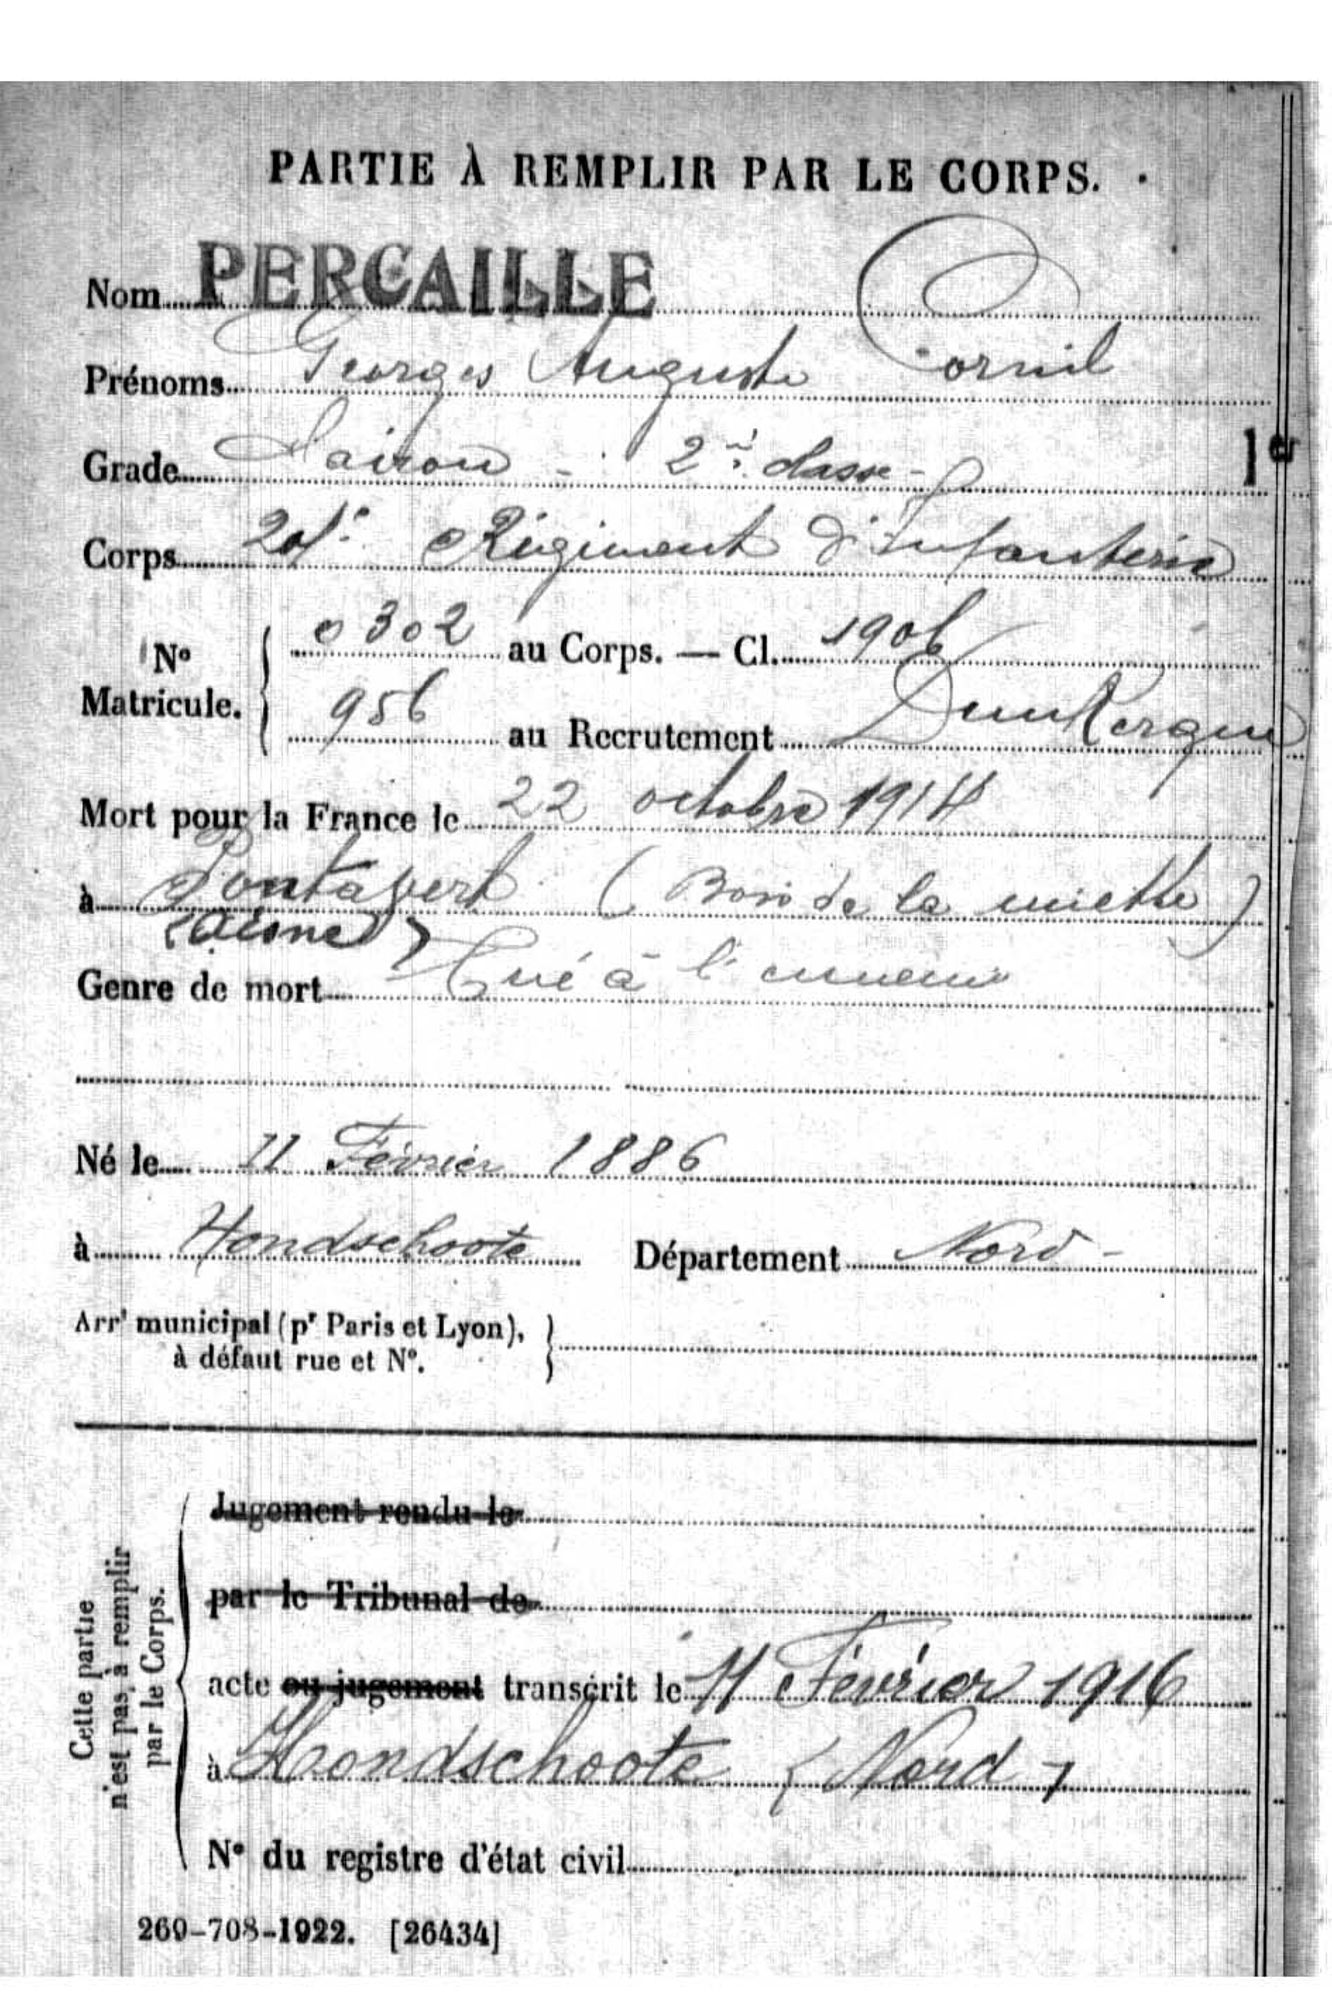 PARTIE À REMPLIR PAR LE CORPS.
Nom PERCAILLE
Prénoms Georges Auguste Cornil
Grade 2e classe
1er
Corps 201e Régiment d'Infanterie
No Matricule. 0302 au Corps. — Cl. 1906
956 au Recrutement Dunkerque
Mort pour la France le 22 octobre 1914
à Pontavert (Bois de la miette)
(Aisne)
Genre de mort Tué à l'ennemi
Né le 11 Février 1886
à Hondschoote Département Nord -
Arrt municipal (pr Paris et Lyon),
à défaut rue et N°.
Cette partie
n'est pas à remplir
par le Corps.
Jugement rendu le
par le Tribunal de
acte ou jugement transcrit le 11 Février 1916
à Hondschoote (Nord)
N° du registre d'état civil
269-708-1922. [26434]